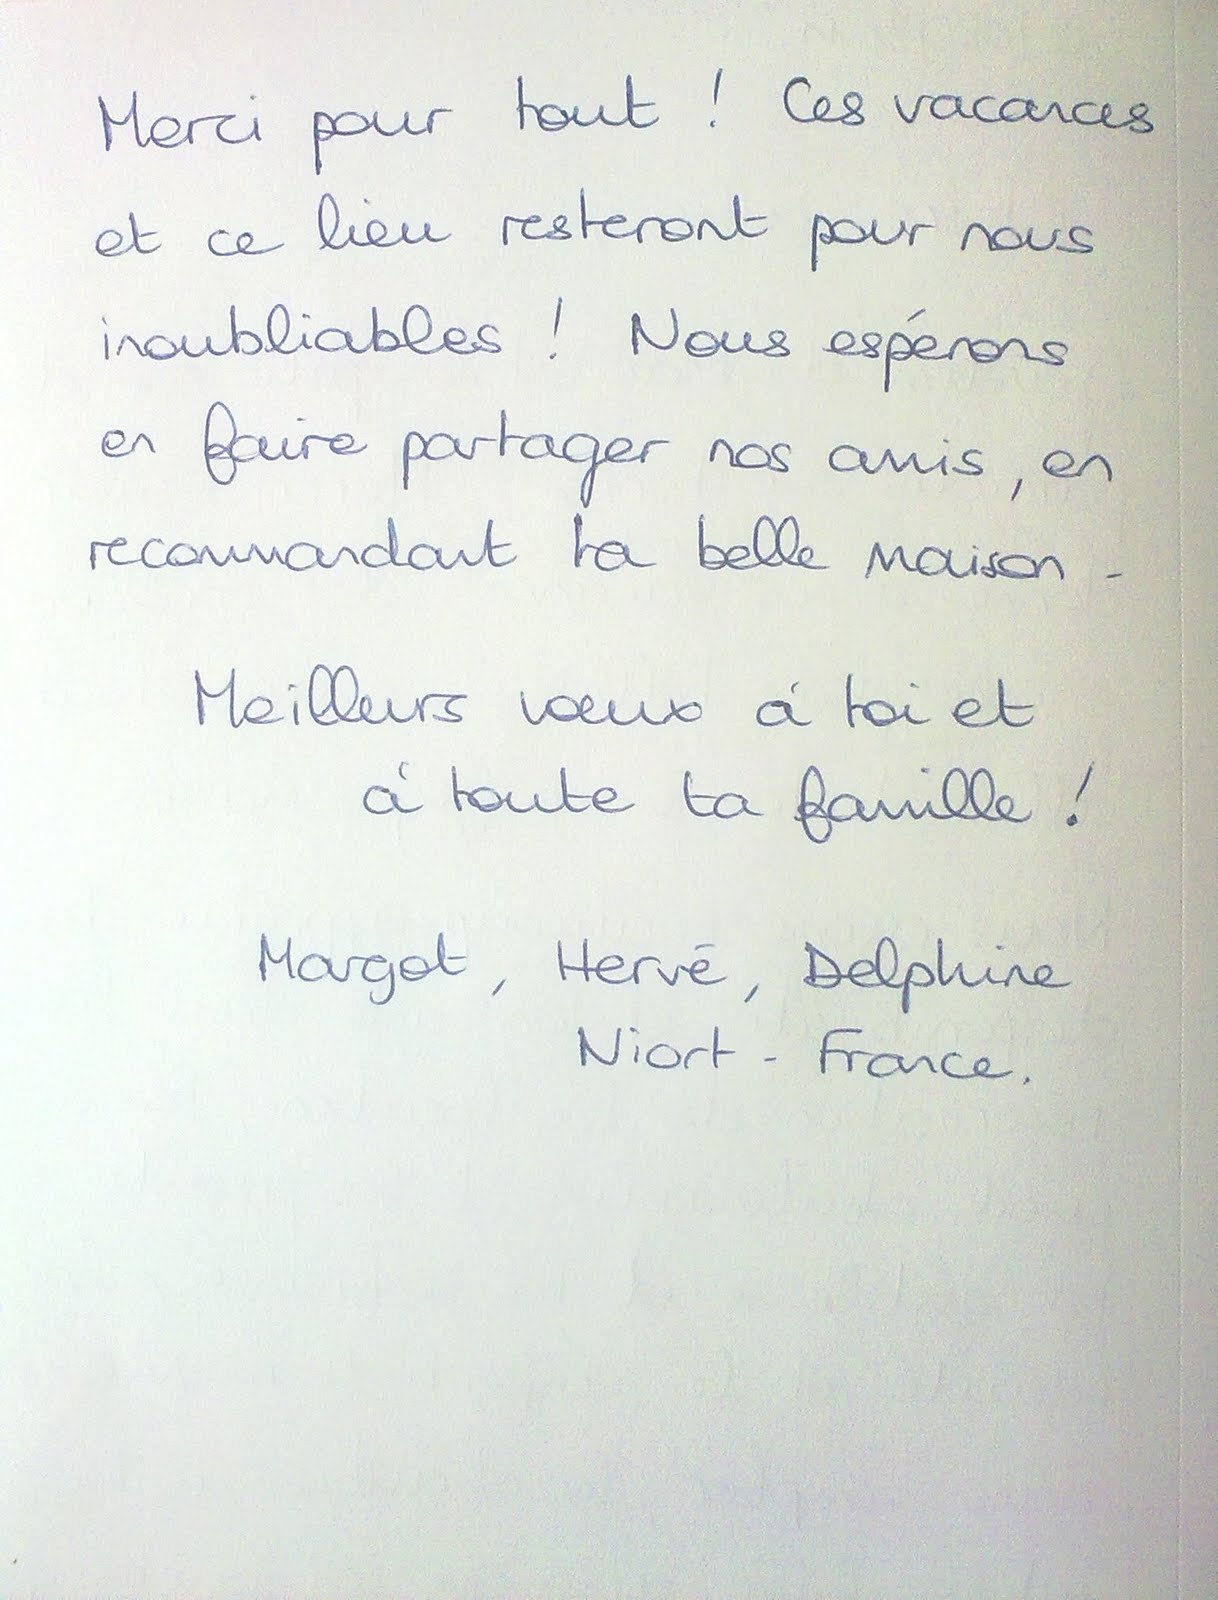 Merci pour tout ! Ces vacances
et ce lieu resteront pour nous
inoubliables ! Nous espérons
en faire partager nos amis, en
recommandant ta belle maison -
Meilleurs vœux á toi et
á toute ta famille !
Margot, Hervé, Delphine
Niort - France.